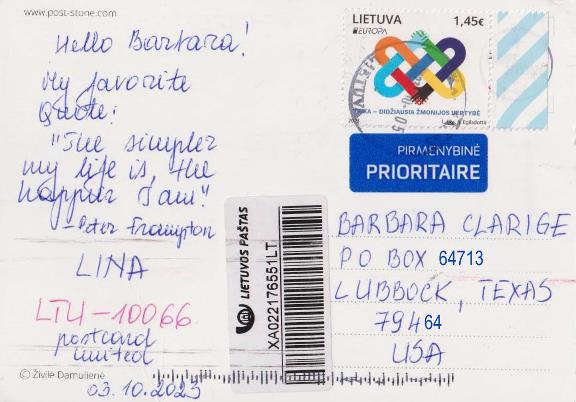 www.post-stone.com
Hello Barbara!
My favorite
Quote:
"The simpler
my life is, the
happier I am."
- Peter Frampton
LINA
LTU-10066
postcard
united
03.10.2023
© Živilė Damulienė
LIETUVA 1,45€
EUROPA
TAIKA – DIDŽIAUSIA ŽMONIJOS VERTYBĖ
PIRMENYBINĖ
PRIORITAIRE
LIETUVOS PAŠTAS
XA022176551LT
BARBARA CLARIGE
PO BOX 64713
LUBBOCK, TEXAS
79464
USA